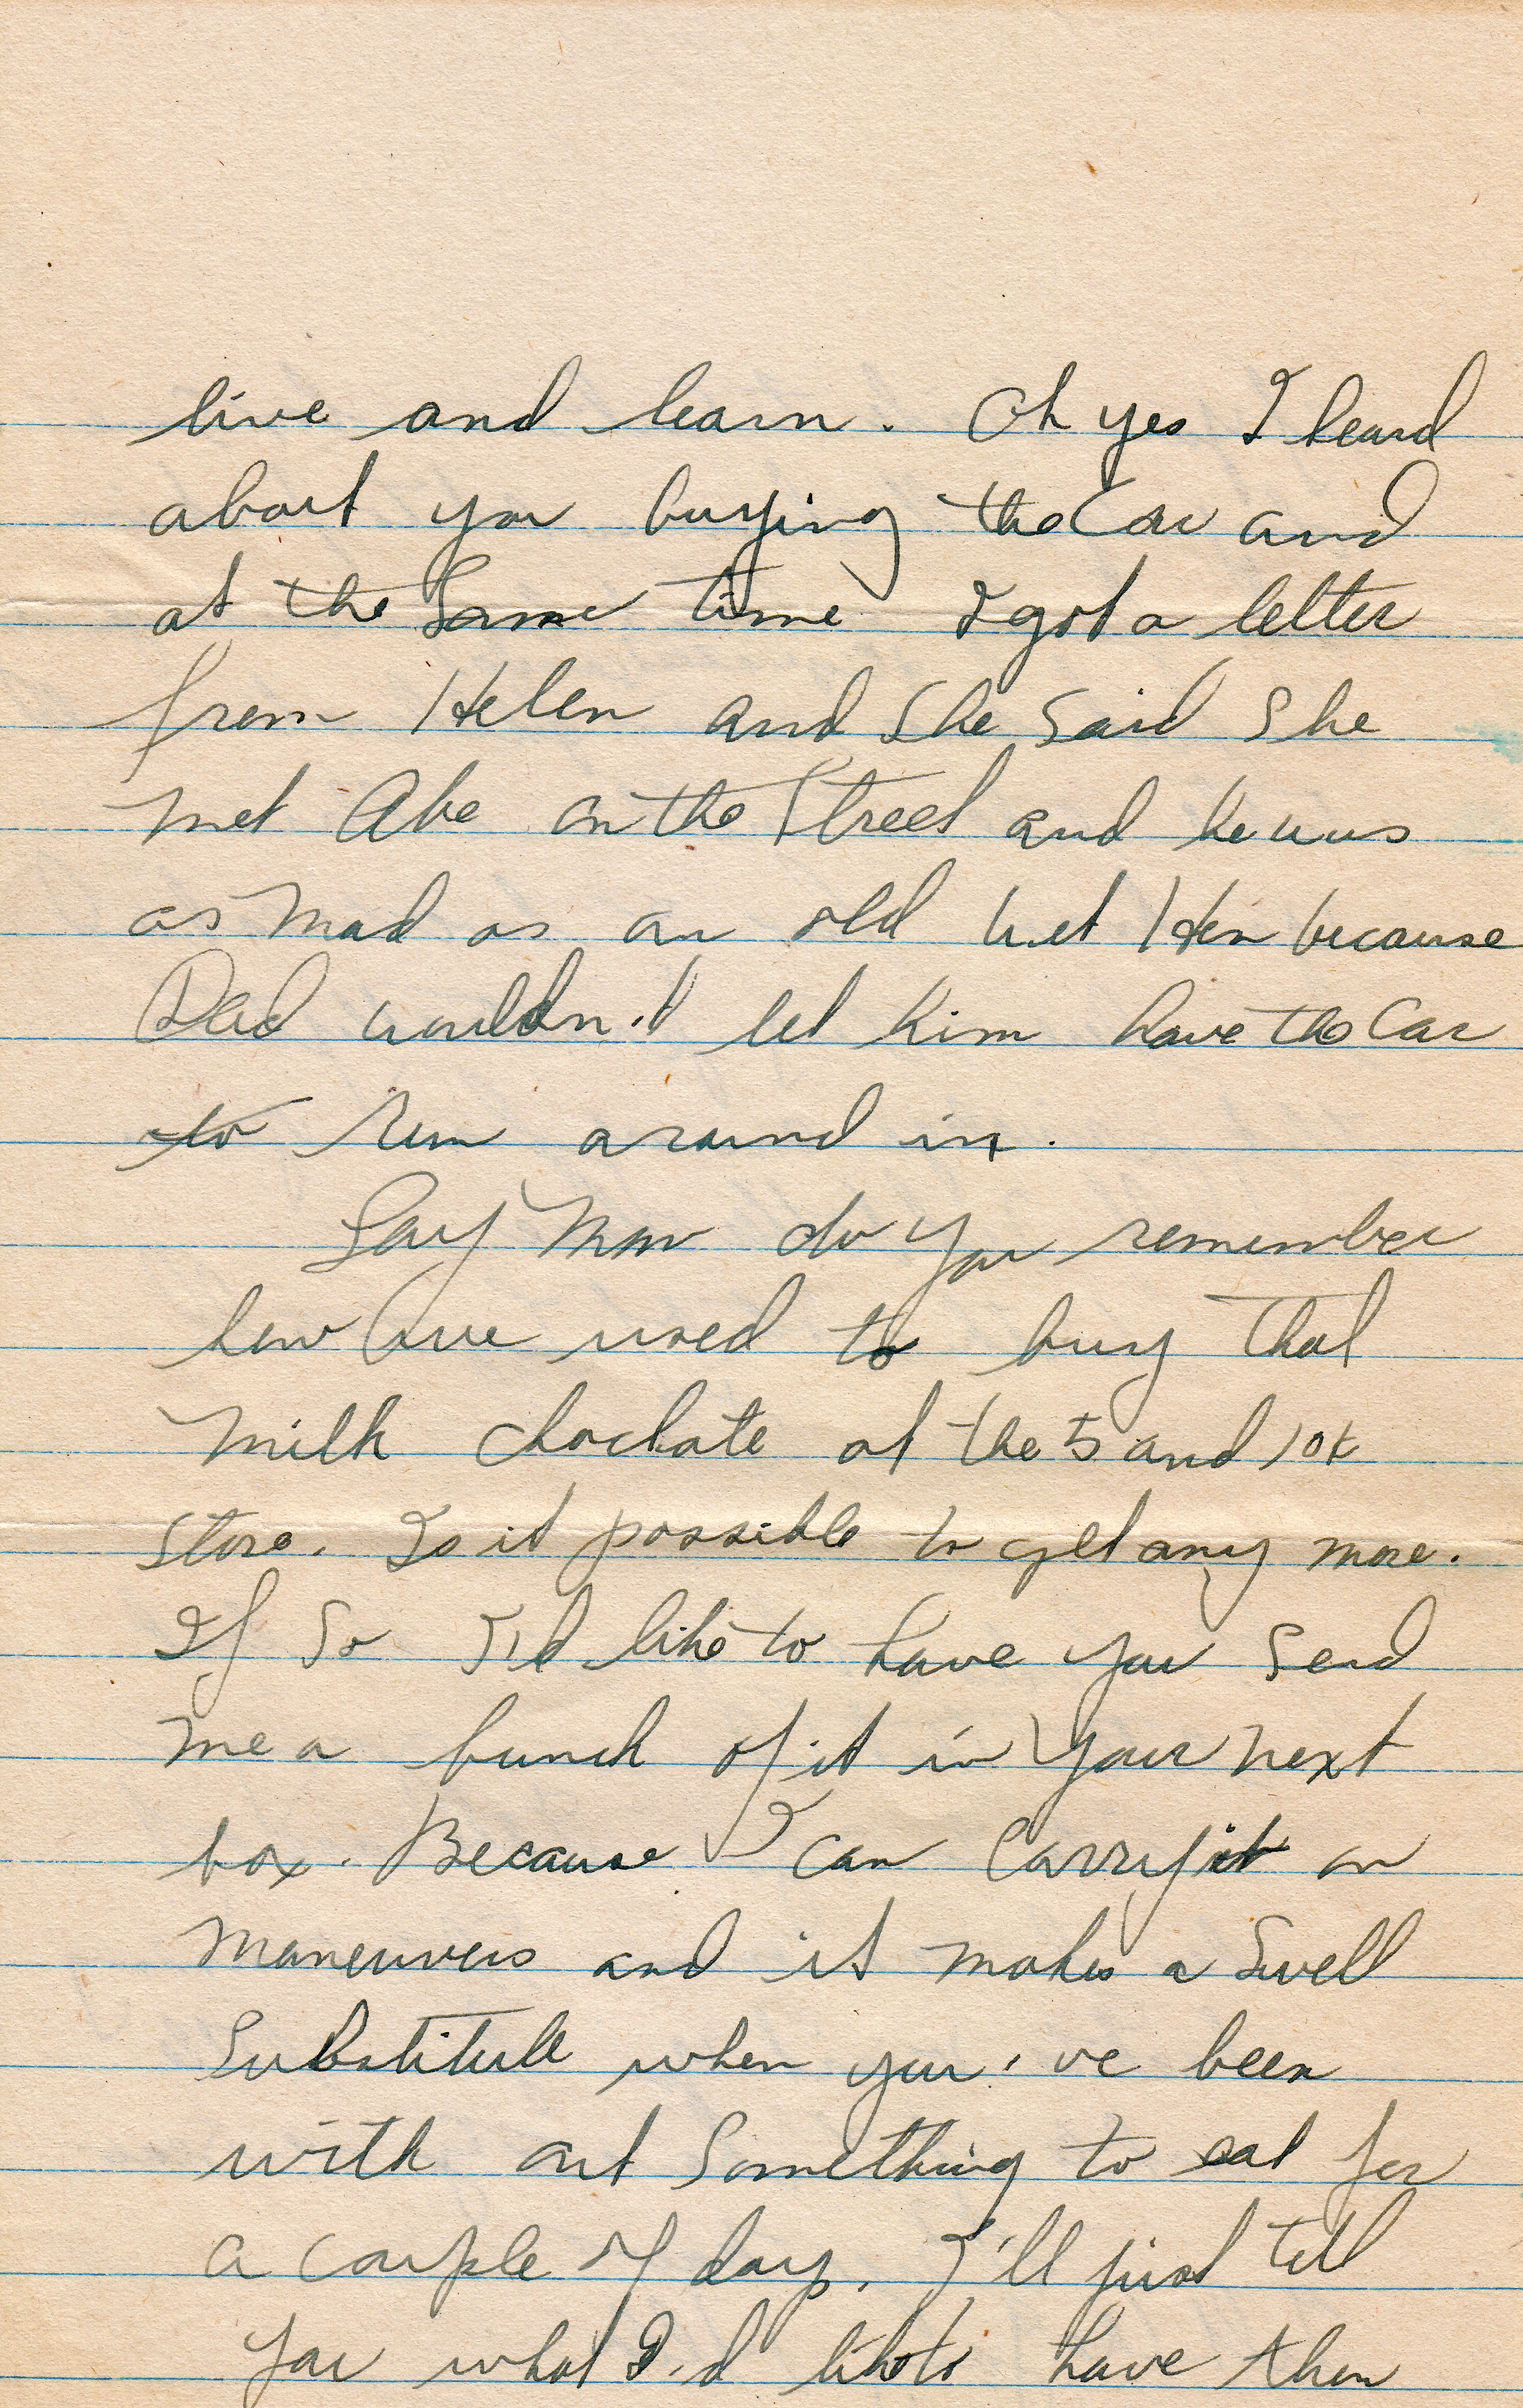 live and learn. Oh yes I heard
about you buying the Car and
at the Same time I got a letter
from Helen and She Said She
met Abe on the Street and he was
as mad as an old wet Hen because
Dad wouldn't let him have the Car
to run around in.
Say Mom do you remember
how we used to buy that
milk choclate at the 5 and 10¢
store. Is it possible to get any more.
If So I'd like to have you Send
me a bunch of it in your next
box. Because I can Carry it on
maneuvers and it makes a Swell
Substitute when you've been
with out Something to eat for
a couple of days. I'll just tell
you what I'd like to have then